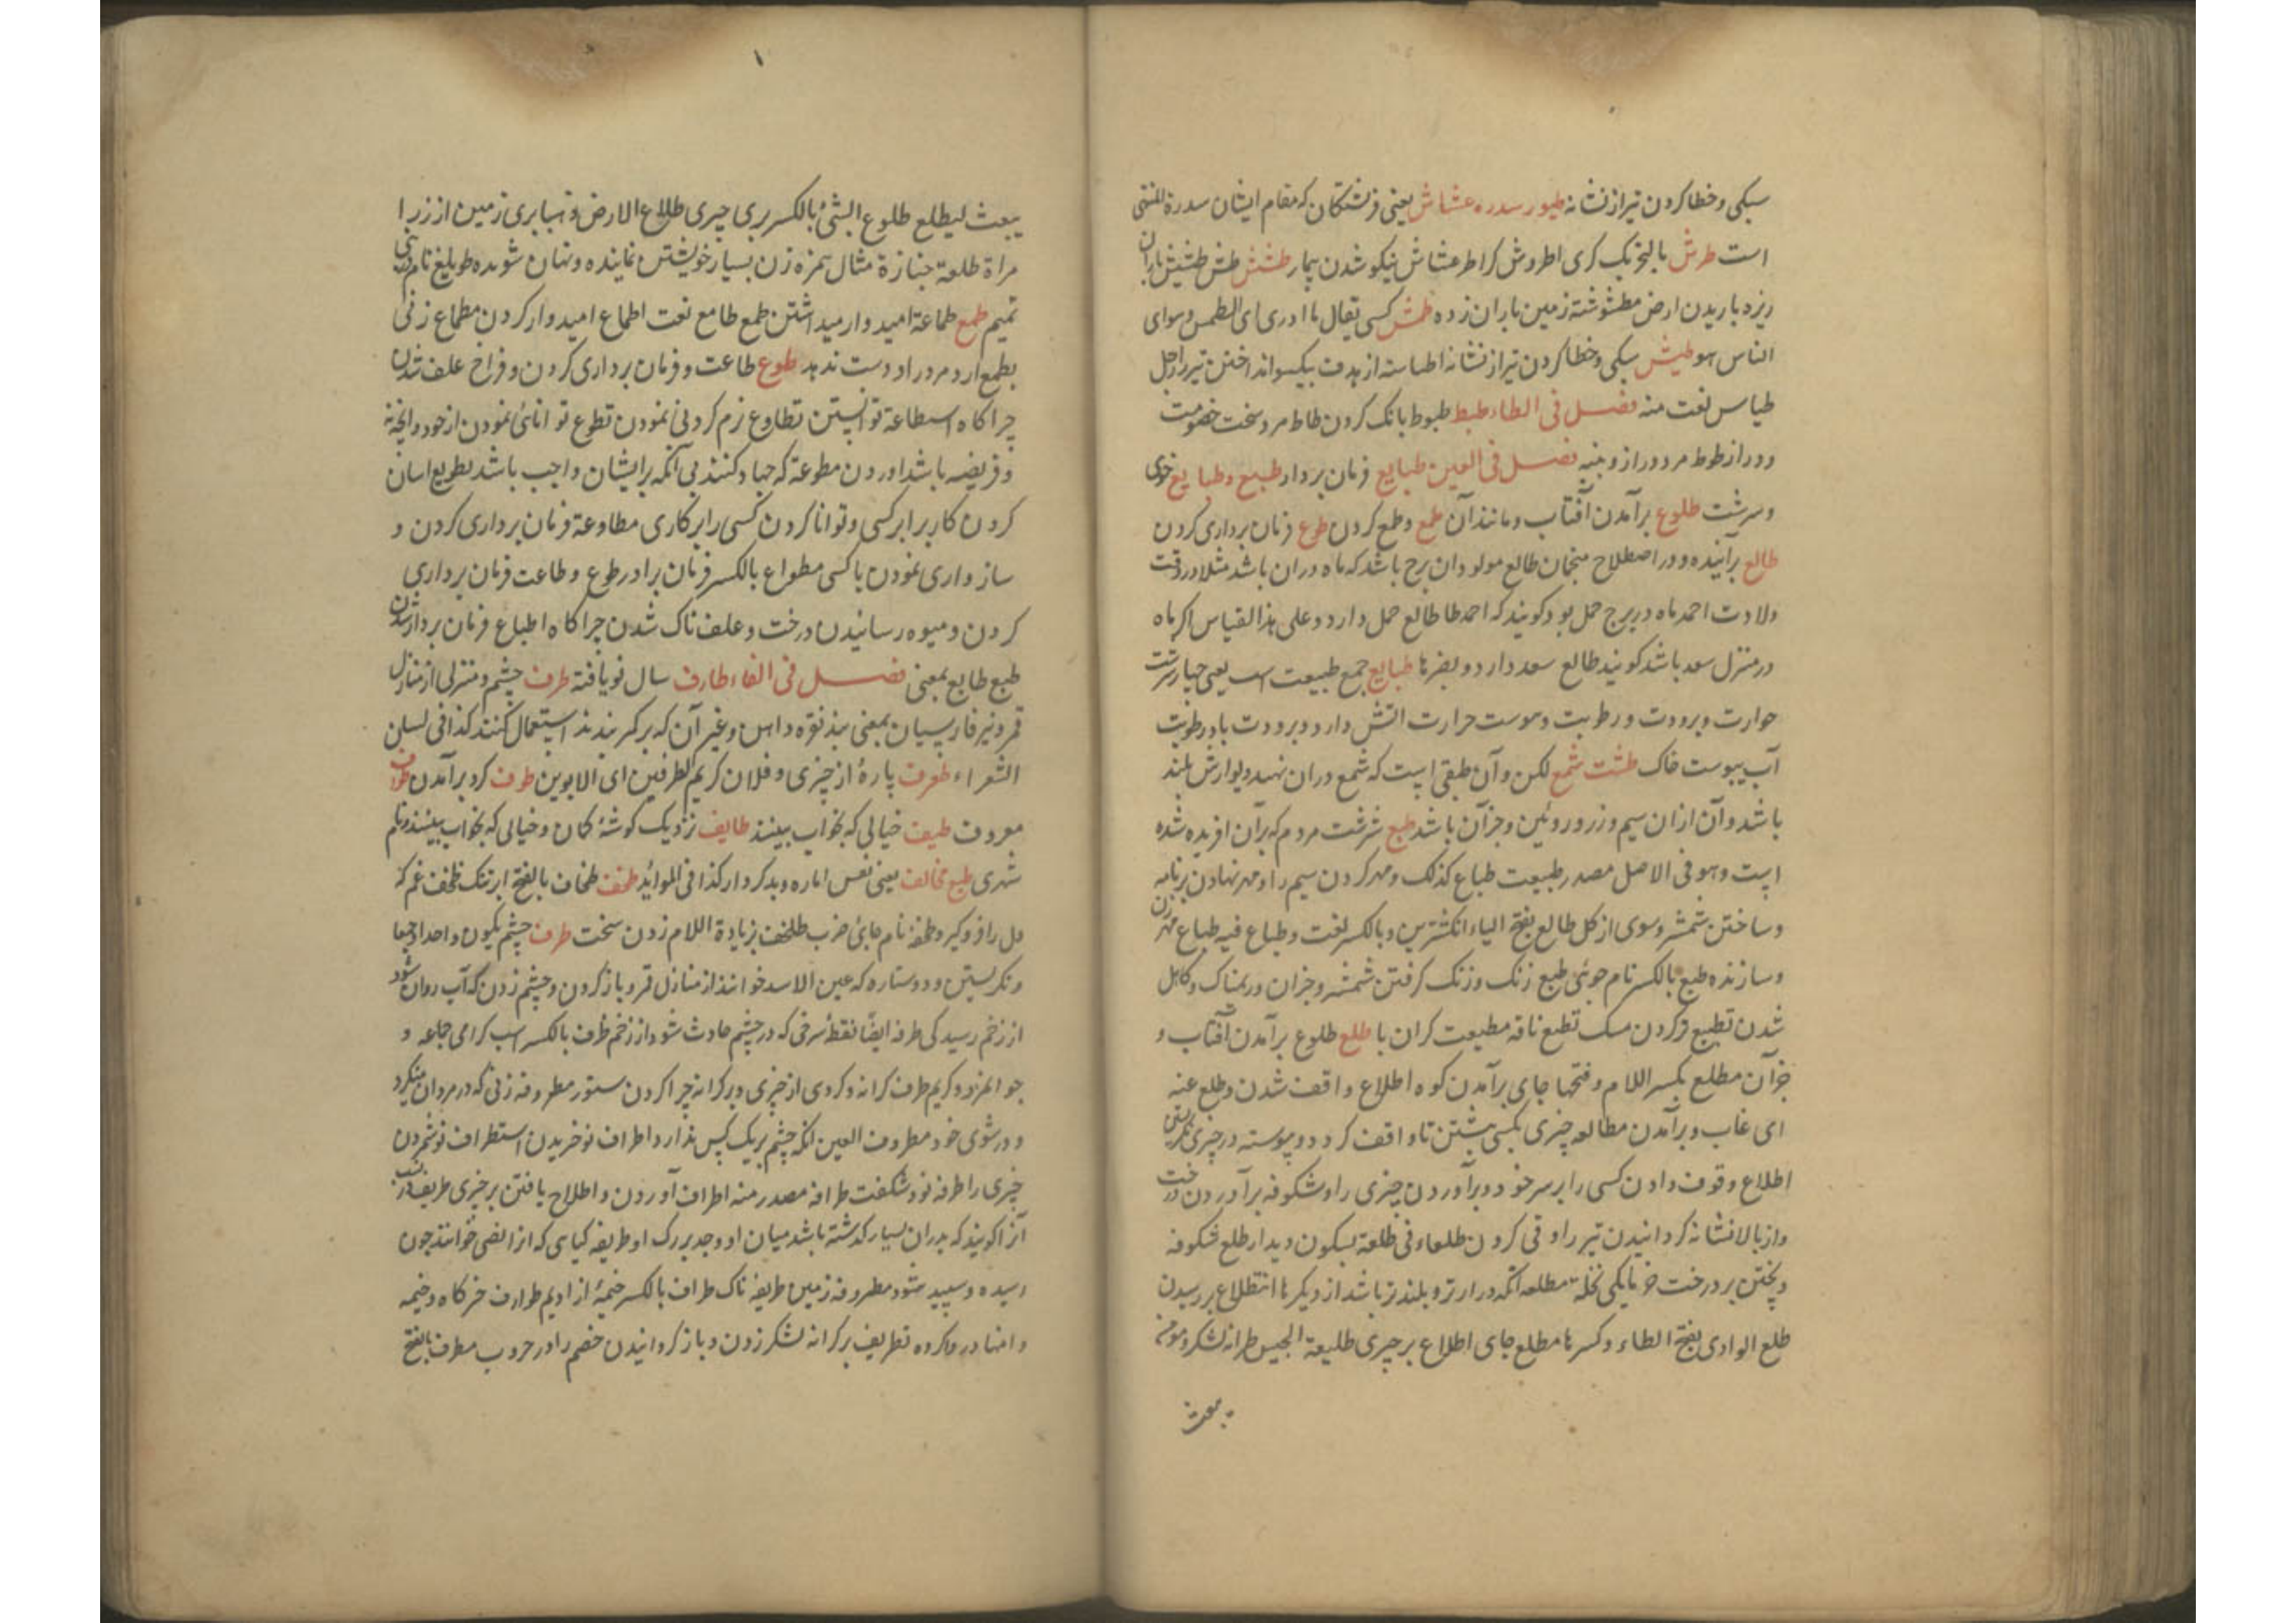 سبکی و خطا کردن تیر از نشانه طیور سدره عشاش یعنی فرشتگان که مقام ایشان سدرة المنتهی
است طرش بالتحریک کری اطروش کر اطرعشاش نیکو شدن بیمار طشش طش طشیش باران
ریزه باریدن ارض مطشوشة زمین باران زده طمش کسی یقال ما ادری ای الطمس وسوای
الناس هو طیش سبکی و خطا کردن تیر از نشانه اطباسته از هدف بیکسو انداختن تیر را رجل
طیاس نعت منه فصل فی الطاء طبط طبوط بانک کردن طاط مرد سخت خصومت
و دراز طوط مرد دراز و پنبه فصل فی العین طبایع فرمان بردار طبع و طبایع خوی
و سرشت طلوع برآمدن آفتاب و مانند آن طمع و طمع کردن طوع فرمان برداری کردن
طالع برآینده و در اصطلاح منجمان طالع مولود ان برج باشد که ماه دران باشد مثلا در وقت
ولادت احمد ماه در برج حمل بود کویند که احمد طالع حمل دارد و علی هذا القیاس اکر ماه
در منزل سعد باشد کویند طالع سعد دارد و بضرها طبایع جمع طبیعت است یعنی چهار سرشت
حرارت و برودت و رطوبت و یبوست حرارت اتش دارد و برودت باد و رطوبت
آب یبوست خاک طشت شمع لکن و آن طبقی است که شمع دران نهند دیوارش بلند
باشد و آن از ان سیم و زر و روئین و جز آن باشد طبع سرشت مردم که بران افریده شده
است و هو فی الاصل مصدر طبیعت طباع کذلک و مهر کردن سیم را و مهر نهادن بر نامه
و ساختن شمشیر و سبوی از کل طابع بفتح الباء انکشترین و بالکسر لغت و طباع فیه طباع مهر زن
و سازنده طبع بالکسر نام جوئی طبع زنک و زنک کرفتن شمشیر و جز آن و ریمناک و کاهل
شدن تطبیع پر کردن مشک تطبع ناقه مطبعت کران بار طلع طلوع برآمدن آفتاب و
جز آن مطلع بکسر اللام و فتحها جای برآمدن کوه اطلاع واقف شدن و طلع عنه
ای غاب و برآمدن مطالعه چیزی بکسی نبشتن تا واقف کردد و پیوسته در چیزی نکریستن
اطلاع وقوف دادن کسی را بر سر خود و برآوردن چیزی را و شکوفه برآوردن درخت
و از بالا نشانه کردانیدن تیر را و قی کردن طلعاء قی طلعة بسکون دیدار طلع شکوفه
و پختن بر درخت خرمایکی نخلة مطلعه انکه دراز تر و بلندتر باشد از دیکرها اتطلاع بر رسیدن
طلع الوادی بفتح الطاء و کسرها مطلع جای اطلاع بر چیزی طلیعة الجیش طرانه لشکر و موخه
یبعث
یبعث لیطلع طلوع الشئ بالکسر بری چیزی طلاع الارض ذهبا بری زمین از زر ا
مراة طلعة جنازة مثال همزه زن بسیار خویشتن نماینده و نهان شونده طویلع نام
تمیم طمع طماعة امید و امید داشتن طمع طامع نعت اطماع امیدوار کردن مطماع زنی
بطمع ارد مرد را و دست ندهد طوع طاعت و فرمان برداری کردن و فراخ علف شدن
چراکاه استطاعة توانستن تطاوع نرم کردنی نمودن تطوع توانائی نمودن از خود و انچه نه
فریضه باشد اوردن مطوعة که جهاد کنند بی انکه بر ایشان واجب باشد تطویع اسان
کردن کار بر ابر کسی و توانا کردن کسی را بر کاری مطاوعة فرمان برداری کردن و
سازواری نمودن با کسی مطواع بالکسر فرمان بردار طوع و طاعت فرمان برداری
کردن و میوه رسانیدن درخت و علف ناک شدن چراکاه اطباع فرمان بردار شدن
طبع طابع بمعنی فصل فی الفاء طارف سال نو یافته طرف چشم و منزلی از منازل
قمر و نیز فارسیان بمعنی بند نقره و اهن و غیر آن که بر کمر بندند استعمال کنند کذا فی لسان
الشعراء طرف پارۀ از چیزی و فلان کریم الطرفین ای الابوین طوف کرد برآمدن طواف
معروف طیف خیالی که بخواب بینند طایف نزدیک کوشۀ کمان و خیالی که بخواب بینند و نام
شهری طبع مخالف یعنی نفس اماره و بد کردار کذا فی الموائد طخف طخاف بالفتح ابر تنک طخف غم که
دل را فرو کیرد و طخفه نام جائی ضرب طلخف بزیادة اللام زدن سخت طرف چشم یکون واحدا و جمعا
و نکریستن و دو ستاره که عین الاسد خوانند از منازل قمر و باز کردن و چشم زدن که آب روان شود
از زخم رسیدکی طرفه ایضا نقطۀ سرخی که در چشم حادث شود از زخم طرف بالکسر اسب کرامی جماعه و
جوانمرد و کریم طرف کرانه و کروهی از چیزی و بر کرانه چرا کردن ستور مطروفه زنی که در مردان نیکرد
و در شوی خود مطروف العین انکه چشم بر یک کس ندارد اطراف نو خریدن استطراف نو شمردن
چیزی را طرفه نو و شکفت طرافه مصدر منه اطراف آوردن و اطلاح یافتن بر چیزی طریف در نسب
آنرا کویند که پدران بسیار کذشته باشد میان او و جد بزرک او طریفه کیاهی که انرا نصی خوانند چون
رسیده و سپید شود مطروفه زمین طریفه ناک طراف بالکسر خیمۀ از ادیم طوارف خرکاه و خیمه
دامنها در واکرده تطریف بر کرانه لشکر زدن و باز کردانیدن خصم را در حروب مطرف بالفتح